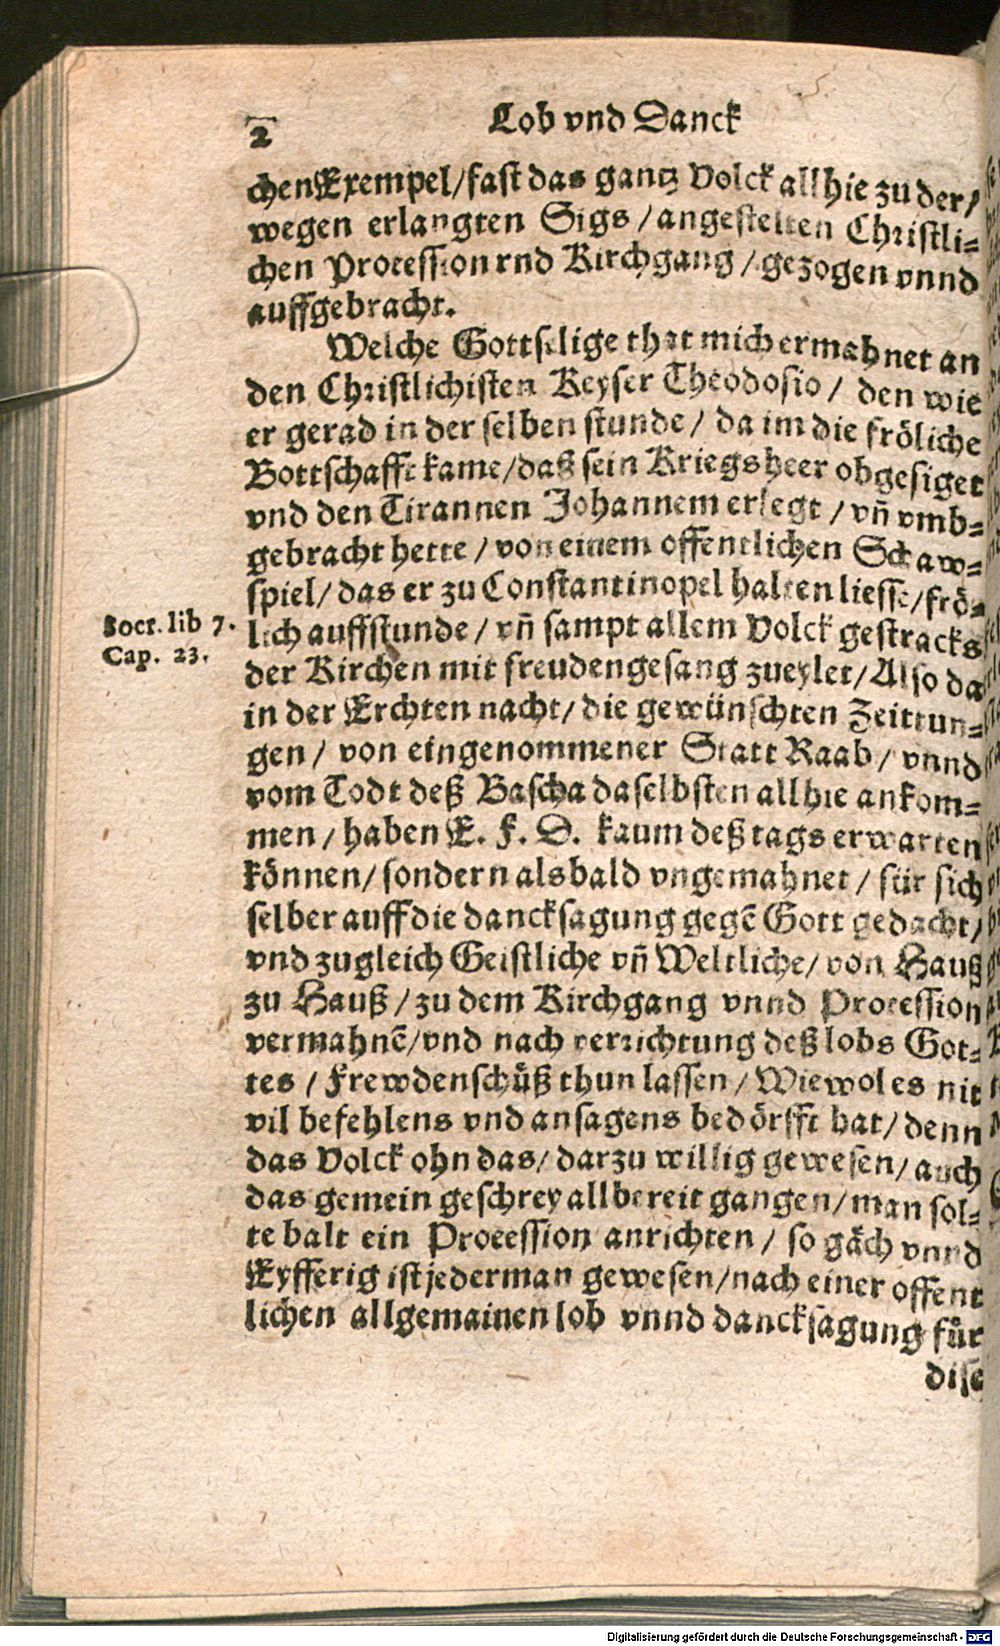 2 Lob vnd Danck
chen Exempel/fast das gantz Volck allhie zu der/
wegen erlangten Sigs/angestelten Christli-
chen Procession vnd Kirchgang/gezogen vnnd
auffgebracht.
Welche Gottselige that mich ermahnet an
den Christlichisten Keyser Theodosio/ den wie
er gerad in der selben stunde/ da im die fröliche
Bottschafft kame/daß sein Kriegsheer obgesiget
vnd den Tirannen Johannem erlegt/vñ vmb-
gebracht hette/von einem offentlichen Schaw-
spiel/das er zu Constantinopel halten liesse/frö-
lich auffstunde/vñ sampt allem Volck gestracks
Socr. lib 7.
Cap. 23.
der Kirchen mit freudengesang zueylet/Also da
in der Erchten nacht/die gewünschten Zeittun-
gen/von eingenommener Statt Raab/vnnd
vom Todt deß Bascha daselbsten allhie ankom-
men/haben E. F. D. kaum deß tags erwarten
können/sondern alsbald vngemahnet/für sich
selber auff die dancksagung gegẽ Gott gedacht/
vnd zugleich Geistliche vñ Weltliche/von Hauß
zu Hauß/zu dem Kirchgang vnnd Procession
vermahnẽ/vnd nach verrichtung deß lobs Got-
tes/Frewdenschüß thun lassen/Wiewol es nit
vil befehlens vnd ansagens bedörfft hat/denn
das Volck ohn das/darzu willig gewesen/auch
das gemein geschrey allbereit gangen/man sol-
te balt ein Procession anrichten/so gäch vnnd
Eyfferig ist jederman gewesen/nach einer offent
lichen allgemainen lob vnnd dancksagung für
dise
Digitalisierung gefördert durch die Deutsche Forschungsgemeinschaft - DFG